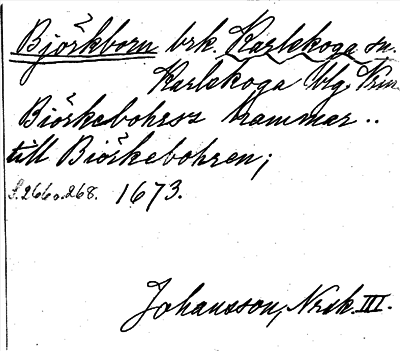 Björkborn brk. Karlskoga sn.
Karlskoga blg. Vrm.
Biörkebohrsz hammar ..
till Biörkebohren;
s. 266 o. 268. 1673.
Johansson, Nrsk. III.